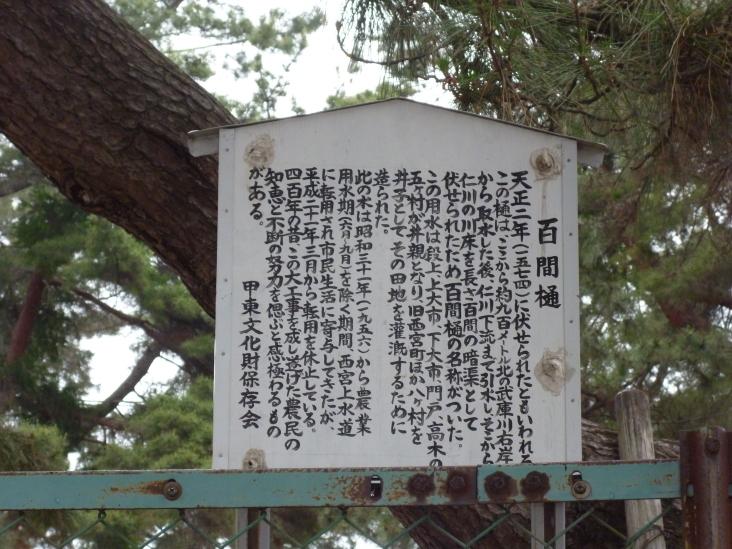 百間樋
天正二年(一五七四)に伏せられたともいわれる
この樋は、ここから約九百メートル北の武庫川右岸
から取水した後、仁川下流まで引水し、そこから
仁川の川床を長さ百間の暗渠として
伏せられたため百間樋の名称がついた。
この用水は段上、上大市、下大市、門戸、高木の
五ヶ村が井親となり、旧西宮町ほか八ヶ村を
井子として、その田地を灌漑するために
造られた。
此の水は昭和三十一年(一九五六)から農業
用水期(六月〜九月)を除く期間、西宮上水道
に転用され市民生活に寄与してきたが、
平成二十一年三月から転用を休止している。
四百年の昔、この大工事を成し遂げた農民の
知恵と不断の努力を偲ぶと感極わるもの
がある。
甲東文化財保存会